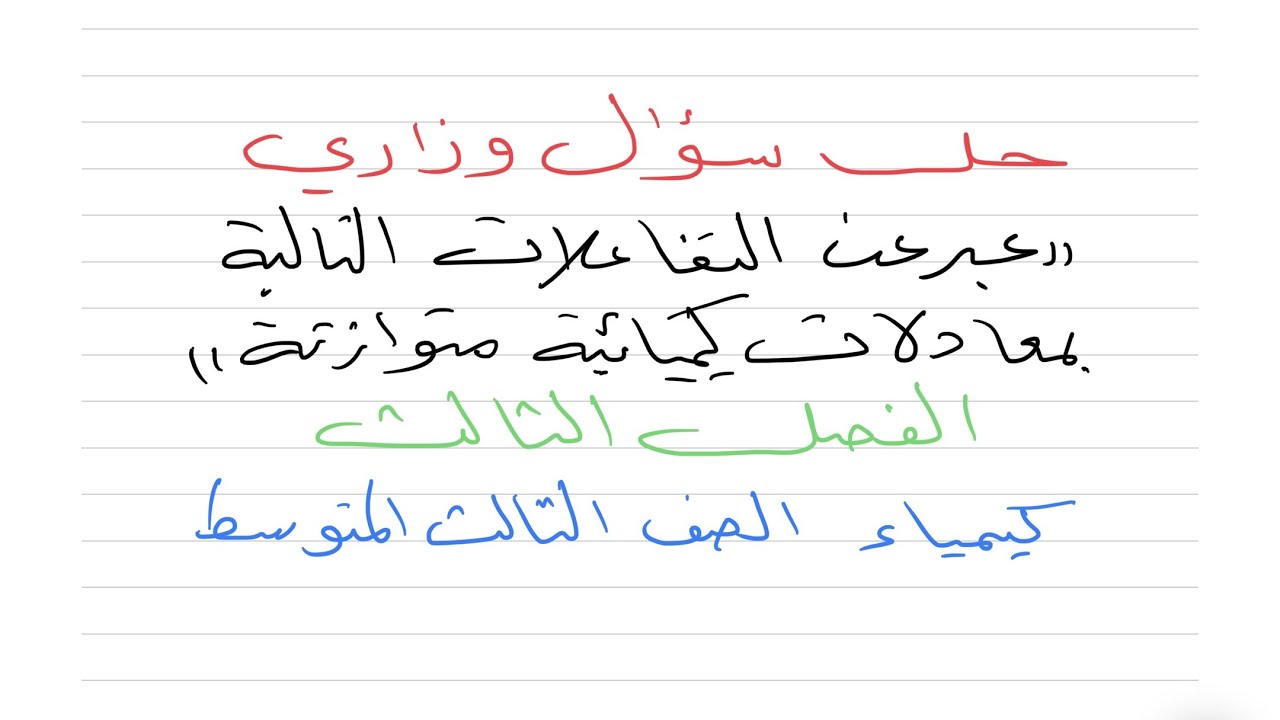 حل سؤال وزاري
"عبر عن التفاعلات التالية
بمعادلات كيميائية متوازنة"
الفصل الثالث
كيمياء الصف الثالث المتوسط